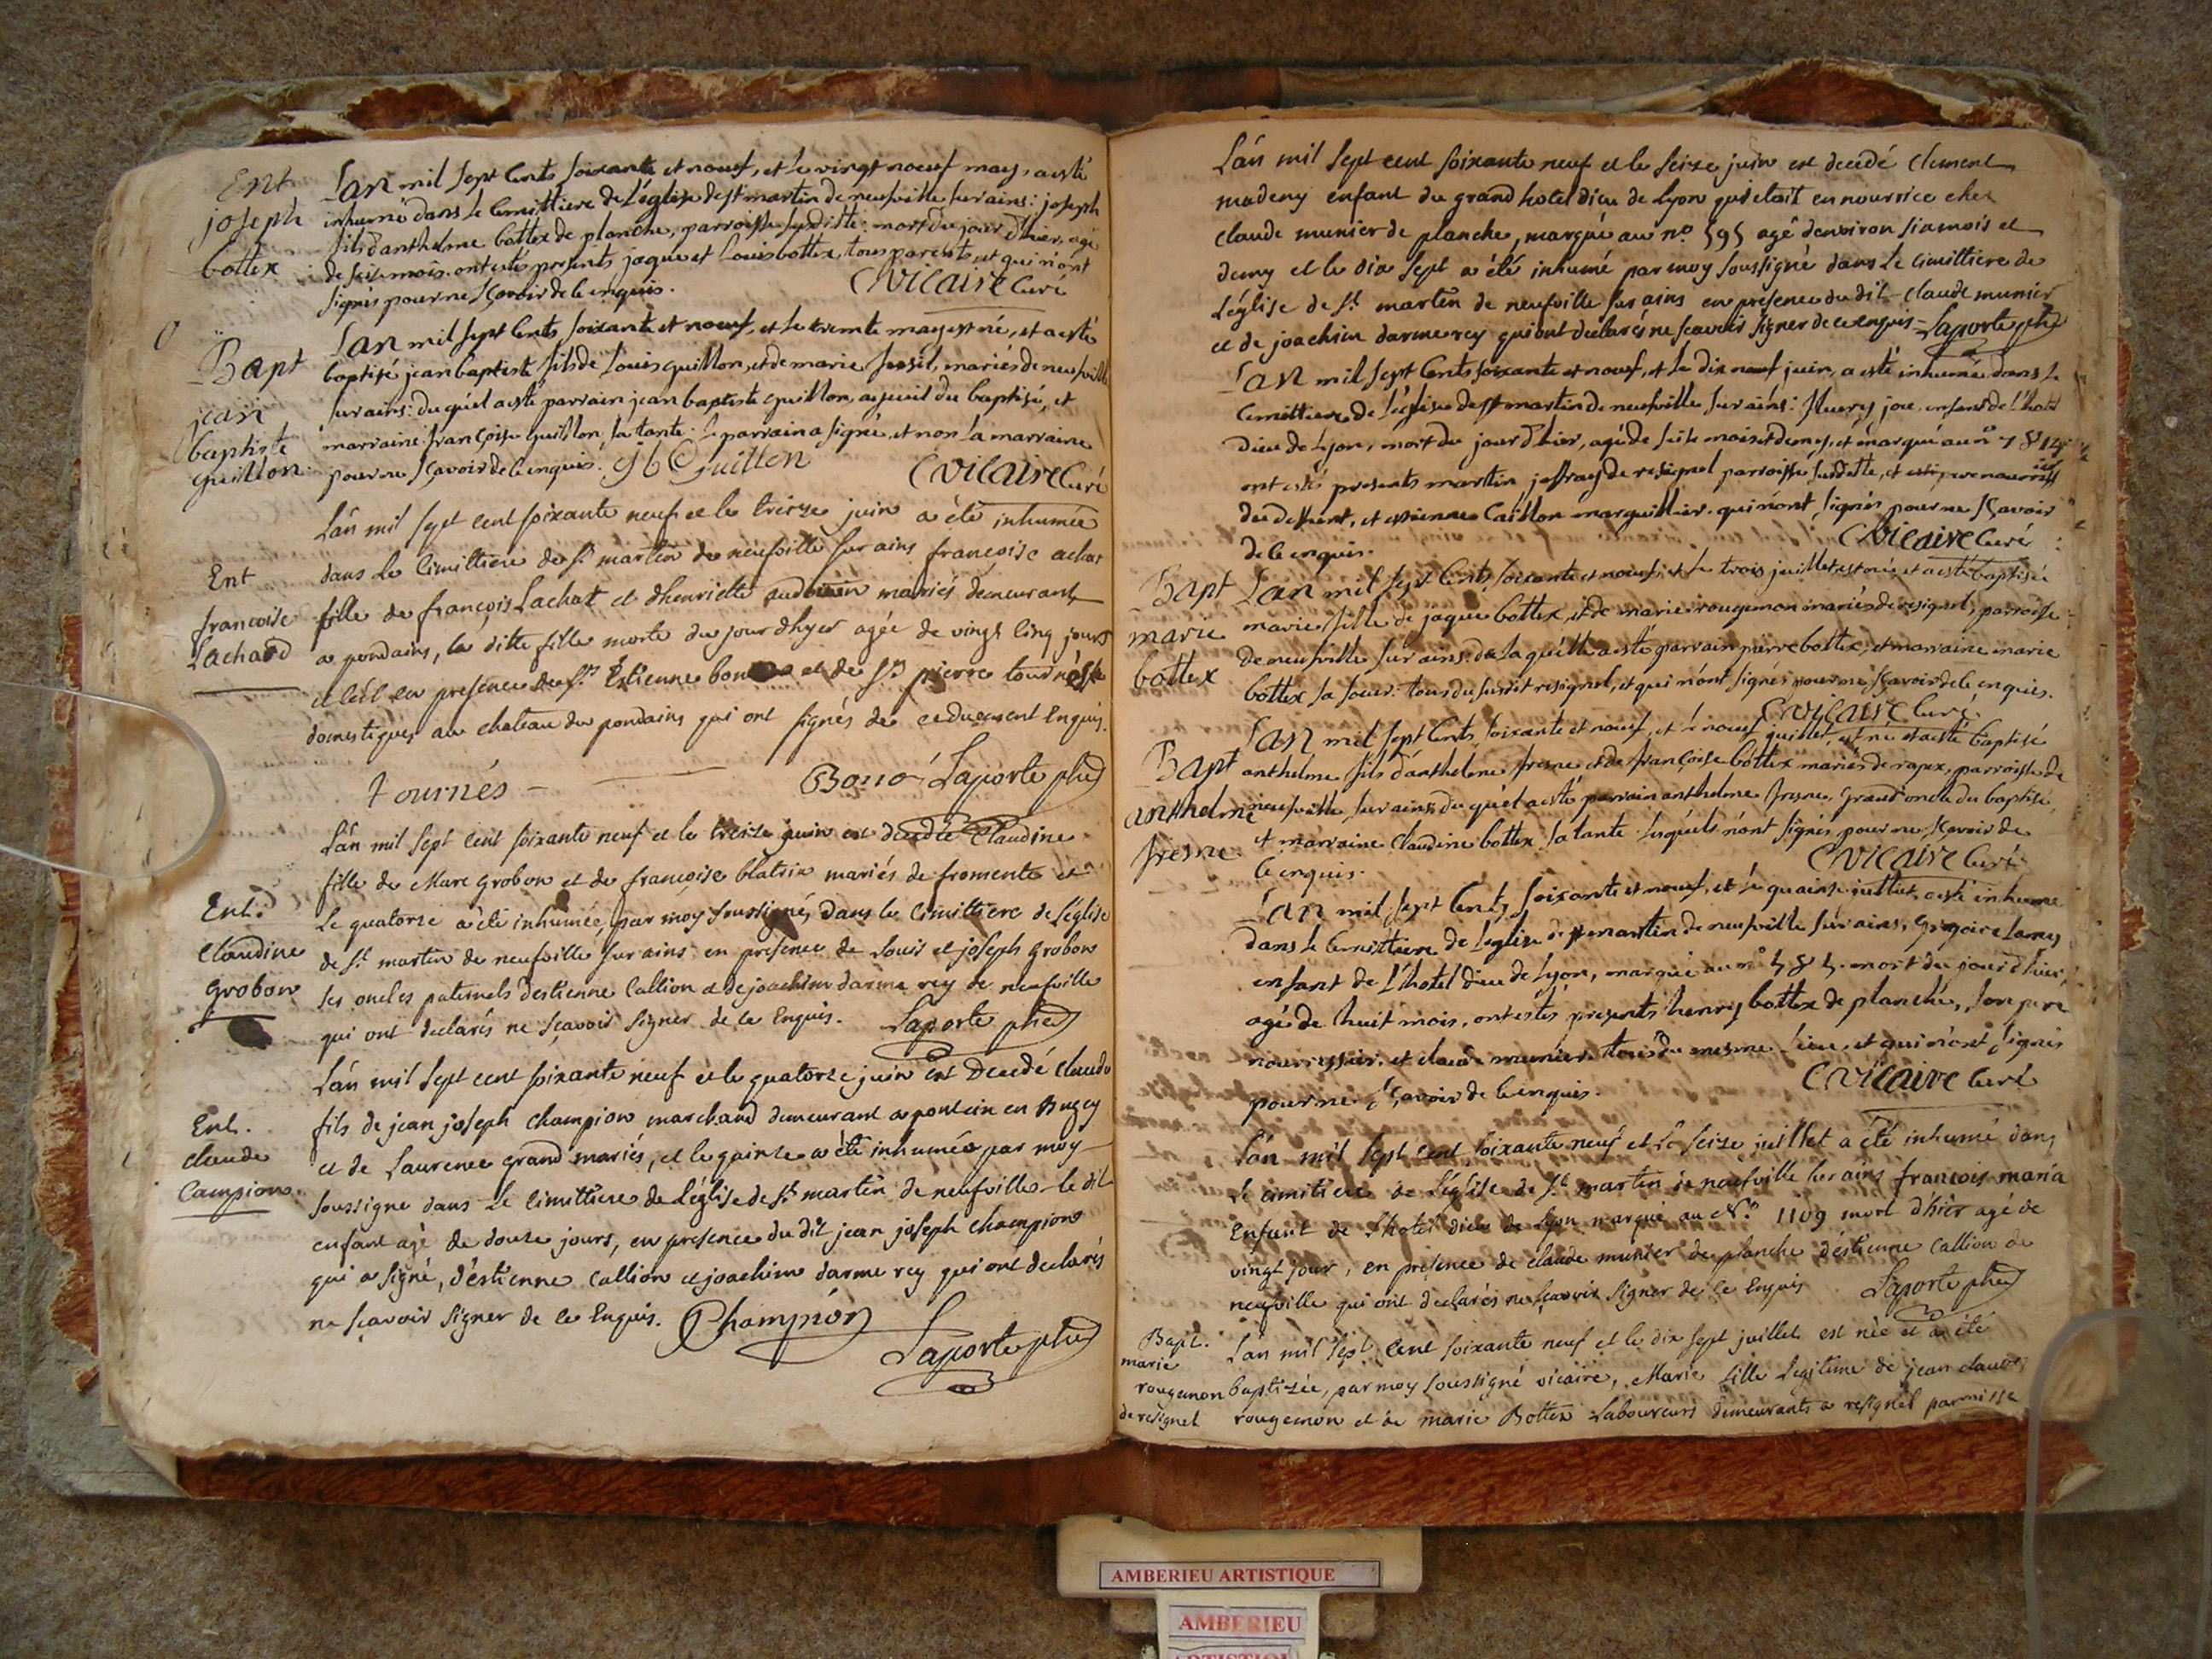 Ent
joseph
bottex
Lan mil sept cents soixante et nœuf, et le vingt nœuf may, a esté
inhumé dans le cemittiere de l'église de st martin de neufville sur ains: joseph
fils danthelme bottex de planche, parroisse susditte: mort du jour d'hier, agé
de seise mois. ont estés presents jaque et Louis bottex, tous parents, et qui n'ont
signés pour ne sçavoir de ce enquis. C vicaire Curé
Bapt
jean
baptiste
guillon
Lan mil sept cents soixante et nœuf, et le trente may est né, et a esté
baptisé jean baptiste fils de Louis guillon, et de marie, mariés de neufville
sur ains: du quel a esté parrain jean baptiste guillon, ayeuil du baptisé, et
marraine françoise guillon, sa tante. le parrain a signé, et non la marraine
pour ne sçavoir de ce enquis. Guillon C vicaire Curé
Ent
francoise
Lachard
Lán mil sept cent soixante neuf et le treize juin a été inhumée
dans le cimittiere de st martin de neufville sur ains françoise achat
fille de françois Lachat et dhenriette mariés demeurant
a pondains, la ditte fille morte du jour dhyer agée de vingt cinq jours
et cèt en presence de Sr Estienne et de Sr pierre
domestiques au chateau du pondains qui ont signés de ce duement Enquis.
tournés Laporte
Ent.
Claudine
Grobon
Lán mil sept cent soixante neuf et le treize juin est decedée Claudine
fille de Marc Grobon et de françoise blatrin mariés de fromente et
Le quatorze a été inhumée, par moy soussigné, dans le cimittiere de l'église
de St martin de neufville sur ains en presence de Louis et joseph Grobon
ses oncles paternels destienne Callion et de joachim darme rey de neufville
qui ont declarés ne sçavoir signer de ce Enquis. Laporte
Ent.
claude
Campion
Lán mil sept cent soixante neuf et le quatorze juin est Decedé claude
fils de jean joseph champion marchand demeurant a pontein en Bugey
et de Laurence grand mariés, et le quinze a été inhumée par moy
soussigne dans le cimittiere de L'église de St martin de neufville le dit
enfant agé de douze jours, en presence du dit jean joseph champion
qui a signé, d'éstienne callion et joachim darme rey qui ont declarés
ne sçavoir signer de ce Enquis. Champion
Laporte
Lán mil sept cent soixante neuf et le seize juin est decedé clement
madeny enfant du grand hotel dieu de Lyon qui etoit en nourrice chez
claude munier de planche, marqué au no. 595 agé denviron six mois et
demy et le dix sept a été inhumé par moy soussigné dans le cimittiere de
L'église de St martin de neufville sur ains en présence du dit claude munier
et de joachim darme rey qui ont declarés ne sçavoir signer de ce enquis Laporte
Lan mil sept cents soixante et nœuf, et le dix nœuf juin, a esté inhumé dans le
cemittiere de l'église de st martin de neufville sur ains: fleury joue, enfant de l'hotel
dieu de Lyon, mort du jour d'hier, agé de seise mois et demy, et marqué au no
ont estés presents martin joffray de resignel parroisse susditte, et
du deffunt, et estienne Caillon marguillier. qui n'ont signés pour ne sçavoir
de ce enquis. C vicaire Curé
Bapt
marie
bottex
Lan mil sept cents soixante et nœuf, et le trois juillet est née, et a esté baptisée
marie fille de jaque bottex, et de marie rougemon mariés de resignel, parroisse
de neufville sur ains: de la quelle a esté parrain pierre bottex, et marraine marie
bottex sa sœur: tous du susdit resignel, et qui n'ont signés pour ne sçavoir de ce enquis.
C vicaire Curé.
Bapt
anthelme
fresne
Lan mil sept cents soixante et nœuf, et le nœuf juillet, est né et a esté baptisé
anthelme fils danthelme fresne et de françoise bottex mariés de rapex, parroisse de
neufville sur ains: du quel a esté parrain anthelme fresne, grand oncle du baptisé,
et marraine Claudine bottex sa tante. lesquels n'ont signés pour ne sçavoir de
ce enquis. C vicaire Curé
Lan mil sept cents soixante et nœuf, et le quainse juillet, a esté inhumé
dans le cemittiere de l'église de st martin de neufville sur ains, Grigoire Lamy
enfant de l'hotel dieu de Lyon, marqué au no mort du jour d'hier,
agé de huit mois, ont estés presents henry bottex de planche, son pere
nourrissier. et claude munier tous du mesme lieu, et qui n'ont signés
pour ne sçavoir de ce enquis. C vicaire Curé
Lán mil sept cent soixante neuf et le seize juillet a été inhumé dans
le cimitiere de l'église de St martin de neufville sur ains francois maria
Enfant de l'hotel dieu de Lyon marqué au No. 1109 mort d'hier agé de
vingt jour, en présence de claude munier de planche d'éstienne Callion de
neufville qui ont declarés ne sçavoir signer de ce Enquis Laporte
Bapt.
marie
rougemon
de resignel
Lán mil sept cent soixante neuf et le dix sept juillet est née et a été
baptizée, par moy soussigné vicaire, Marie fille Légitime de jean claude
rougemon et de marie Bottex Laboureurs demeurants a resignel parroisse
AMBERIEU ARTISTIQUE
AMBERIEU
ARTISTIQUE